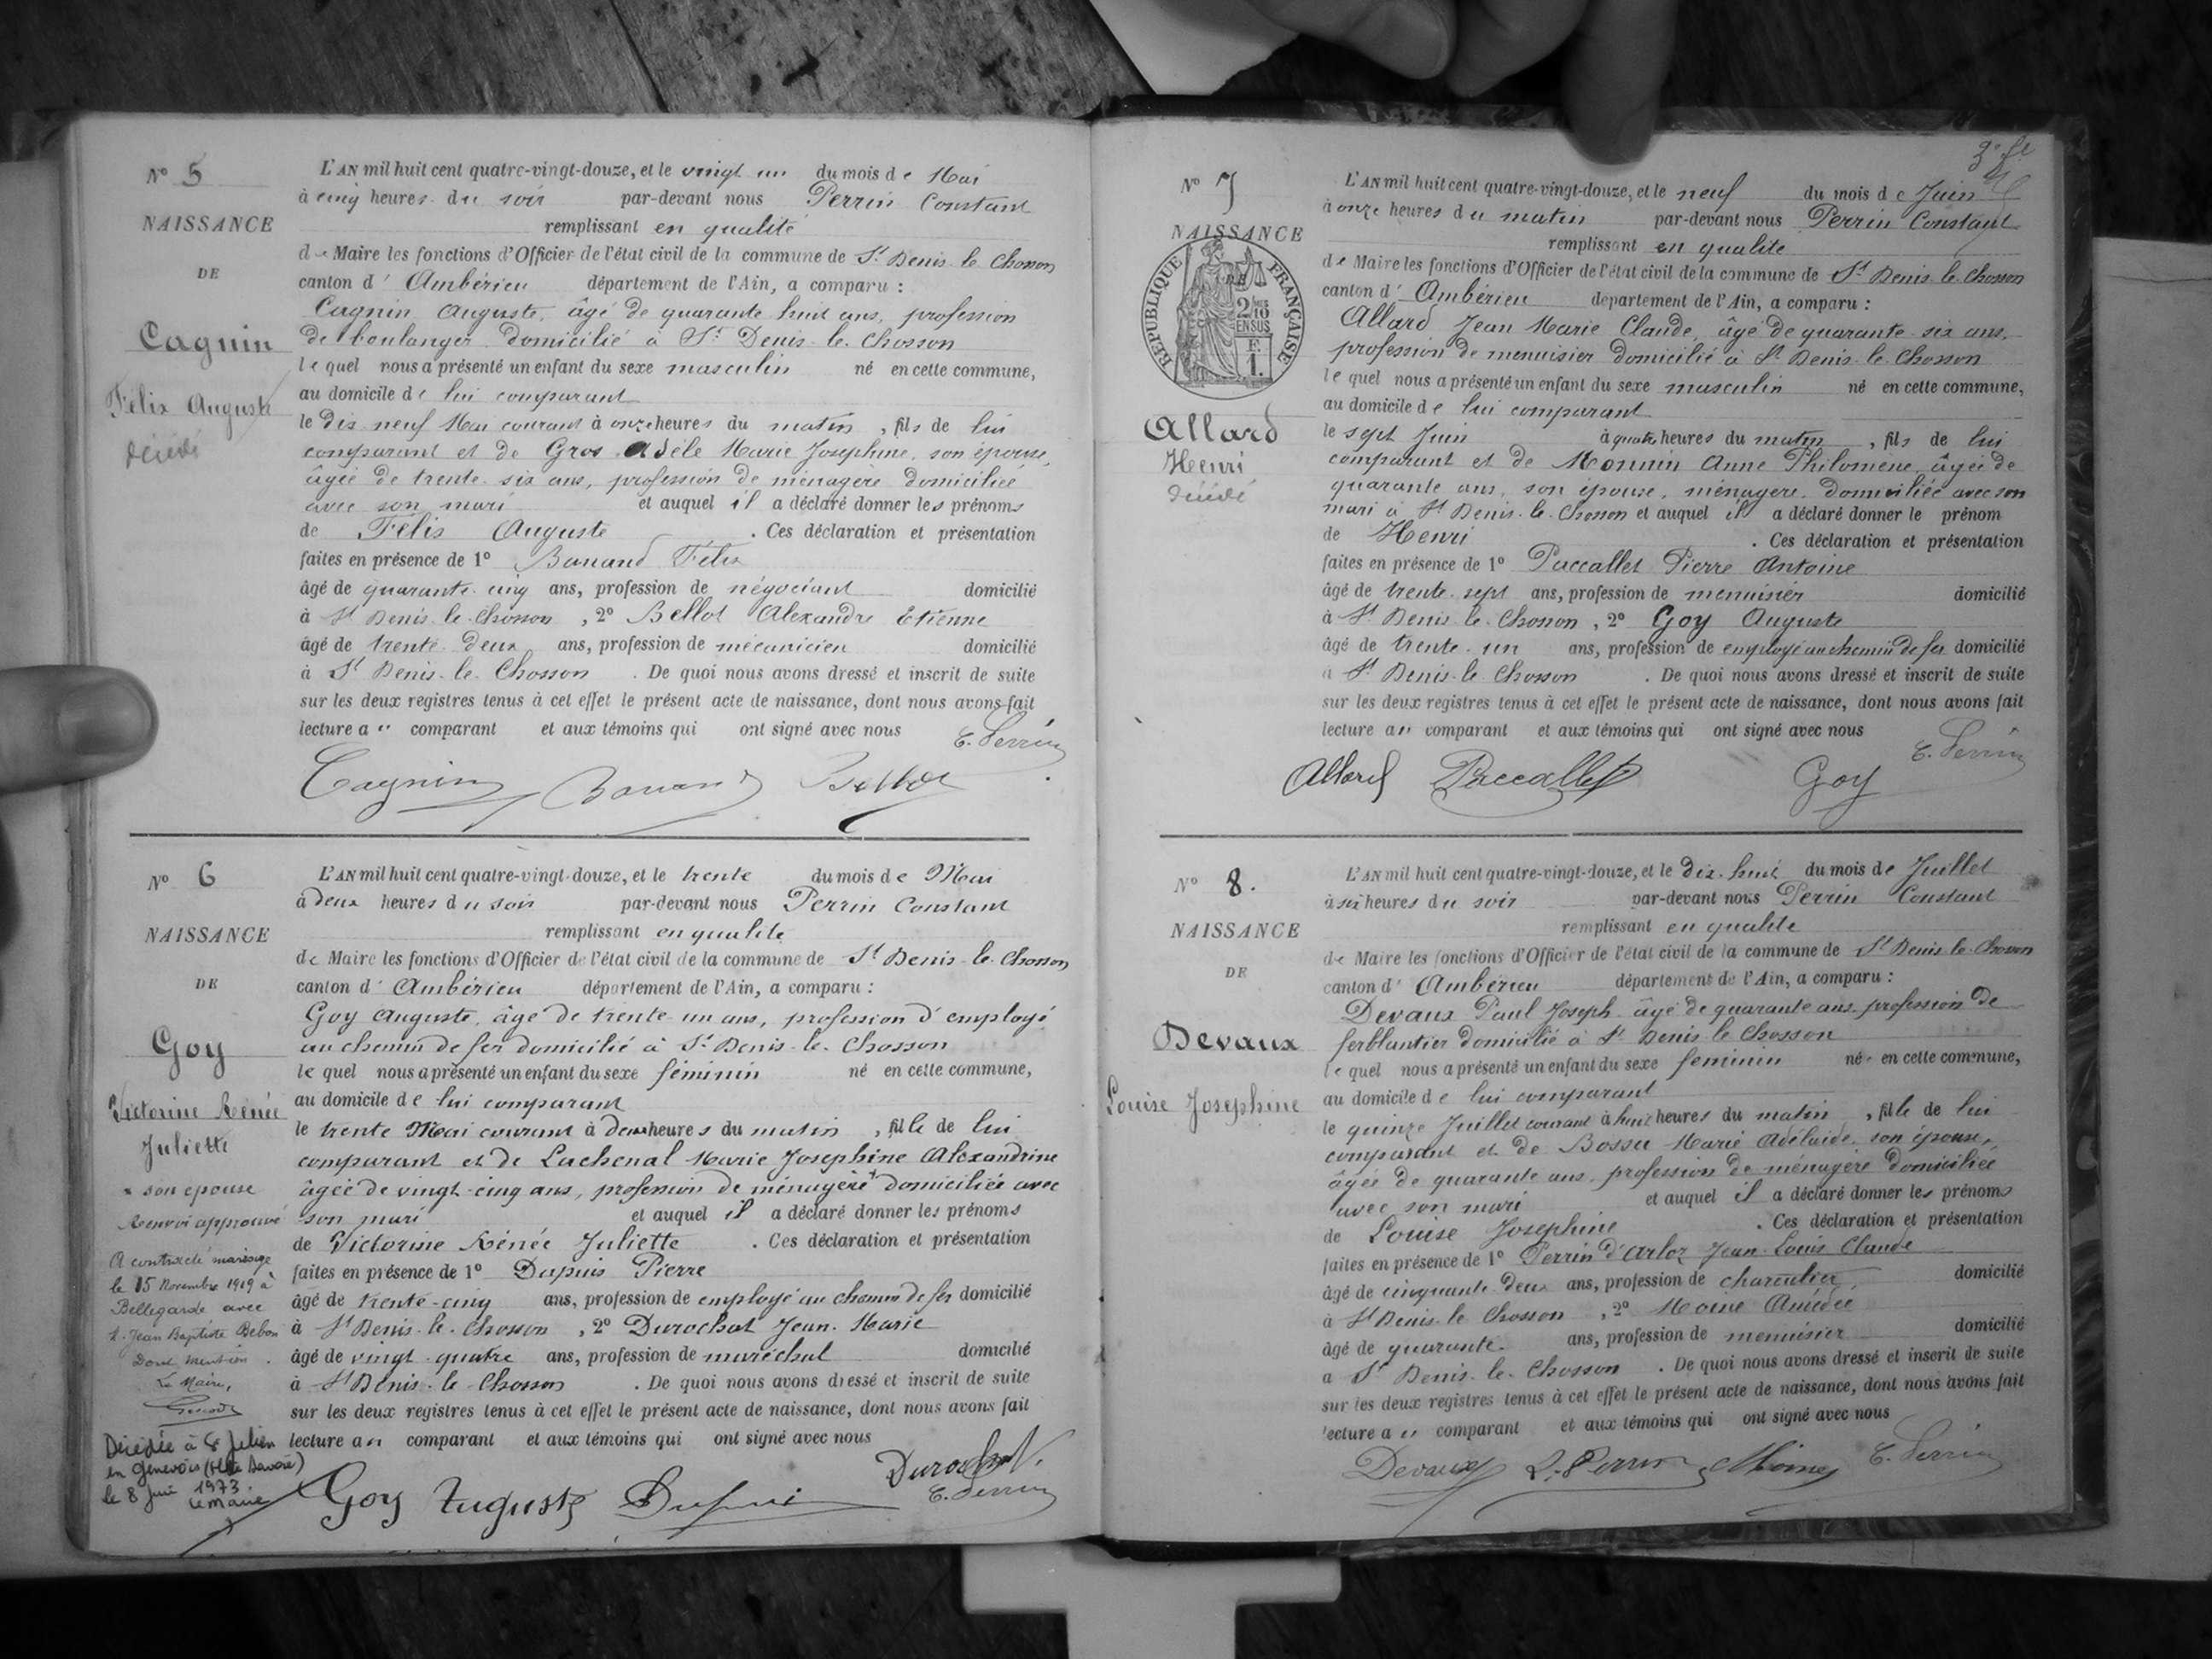 N° 5
NAISSANCE
DE
Cagnin
Félix Auguste
décédé
L'AN mil huit cent quatre-vingt-douze, et le vingt un du mois de Mai
à cinq heures du soir par-devant nous Perrin Constant
remplissant en qualité
de Maire les fonctions d'Officier de l'état civil de la commune de St Denis-le-Chosson
canton d' Ambérieu département de l'Ain, a comparu :
Cagnin Auguste, âgé de quarante huit ans, profession
de boulanger domicilié à St Denis-le-Chosson
lequel nous a présenté un enfant du sexe masculin né en cette commune,
au domicile de lui comparant
le dix neuf Mai courant à onze heures du matin, fils de lui
comparant et de Gros Adèle Marie Joséphine, son épouse,
âgée de trente-six ans, profession de ménagère domiciliée
avec son mari et auquel il a déclaré donner les prénoms
de Félix Auguste. Ces déclaration et présentation
faites en présence de 1° Banand Félix
âgé de quarante-cinq ans, profession de négociant domicilié
à St Denis-le-Chosson, 2° Bellot Alexandre Etienne
âgé de trente-deux ans, profession de mécanicien domicilié
à St Denis-le-Chosson. De quoi nous avons dressé et inscrit de suite
sur les deux registres tenus à cet effet le présent acte de naissance, dont nous avons fait
lecture au comparant et aux témoins qui ont signé avec nous
C. Perrin
Cagnin Banand Bellot
N° 6
NAISSANCE
DE
Goy
Victorine Rénée
Juliette
+ son épouse
Renvoi approuvé
A contracté mariage
le 15 Novembre 1919 à
Bellegarde avec
Jean Baptiste Bebon
Dont mention.
Le Maire,
Décédée à St Julien
en Genevois (Hte Savoie)
le 8 Juin 1973
Le Maire
L'AN mil huit cent quatre-vingt-douze, et le trente du mois de Mai
à deux heures du soir par-devant nous Perrin Constant
remplissant en qualité
de Maire les fonctions d'Officier de l'état civil de la commune de St Denis-le-Chosson
canton d' Ambérieu département de l'Ain, a comparu :
Goy Auguste, âgé de trente-un ans, profession d'employé
au chemin de fer domicilié à St Denis-le-Chosson
lequel nous a présenté un enfant du sexe féminin né en cette commune,
au domicile de lui comparant
le trente Mai courant à deux heures du matin, fille de lui
comparant et de Lachenal Marie Joséphine Alexandrine
âgée de vingt-cinq ans, profession de ménagère + domiciliée avec
son mari et auquel il a déclaré donner les prénoms
de Victorine Rénée Juliette. Ces déclaration et présentation
faites en présence de 1° Dupuis Pierre
âgé de trente-cinq ans, profession de employé au chemin de fer domicilié
à St Denis-le-Chosson, 2° Durochat Jean-Marie
âgé de vingt-quatre ans, profession de maréchal domicilié
à St Denis-le-Chosson. De quoi nous avons dressé et inscrit de suite
sur les deux registres tenus à cet effet le présent acte de naissance, dont nous avons fait
lecture au comparant et aux témoins qui ont signé avec nous
Durochat
Goy Auguste Dupuis C. Perrin
N° 7
NAISSANCE
RÉPUBLIQUE FRANÇAISE
Allard
Henri
décédé
L'AN mil huit cent quatre-vingt-douze, et le neuf du mois de Juin
à onze heures du matin par-devant nous Perrin Constant
remplissant en qualité
de Maire les fonctions d'Officier de l'état civil de la commune de St Denis-le-Chosson
canton d' Ambérieu département de l'Ain, a comparu :
Allard Jean Marie Claude, âgé de quarante-six ans,
profession de menuisier domicilié à St Denis-le-Chosson
lequel nous a présenté un enfant du sexe masculin né en cette commune,
au domicile de lui comparant
le sept Juin à quatre heures du matin, fils de lui
comparant et de Monnin Anne Philomène, âgée de
quarante ans, son épouse, ménagère, domiciliée avec son
mari à St Denis-le-Chosson et auquel il a déclaré donner le prénom
de Henri. Ces déclaration et présentation
faites en présence de 1° Paccallet Pierre Antoine
âgé de trente-sept ans, profession de menuisier domicilié
à St Denis-le-Chosson, 2° Goy Auguste
âgé de trente-un ans, profession de employé au chemin de fer domicilié
à St Denis-le-Chosson. De quoi nous avons dressé et inscrit de suite
sur les deux registres tenus à cet effet le présent acte de naissance, dont nous avons fait
lecture au comparant et aux témoins qui ont signé avec nous
C. Perrin
Allard Paccallet Goy
N° 8.
NAISSANCE
DE
Devaux
Louise Joséphine
L'AN mil huit cent quatre-vingt-douze, et le dix-huit du mois de Juillet
à six heures du soir par-devant nous Perrin Constant
remplissant en qualité
de Maire les fonctions d'Officier de l'état civil de la commune de St Denis-le-Chosson
canton d' Ambérieu département de l'Ain, a comparu :
Devaux Paul Joseph âgé de quarante ans profession de
ferblantier domicilié à St Denis le Chosson
lequel nous a présenté un enfant du sexe féminin née en cette commune,
au domicile de lui comparant
le quinze Juillet courant à huit heures du matin, fille de lui
comparant et de Bossu Marie Adélaïde, son épouse,
âgée de quarante ans, profession de ménagère domiciliée
avec son mari et auquel il a déclaré donner les prénoms
de Louise Joséphine. Ces déclaration et présentation
faites en présence de 1° Perrin d'Arloz Jean-Louis Claude
âgé de cinquante deux ans, profession de charcutier domicilié
à St Denis-le-Chosson, 2° Moine Amédée
âgé de quarante ans, profession de menuisier domicilié
à St Denis-le-Chosson. De quoi nous avons dressé et inscrit de suite
sur les deux registres tenus à cet effet le présent acte de naissance, dont nous avons fait
lecture au comparant et aux témoins qui ont signé avec nous
Devaux L. Perrin Moine C. Perrin